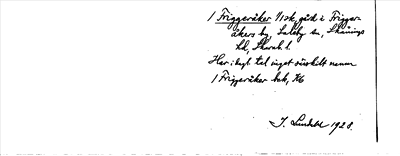 1 Friggeråker 1/1 sk, gård i Frigger-
åkers by, Saleby sn, Skånings
hd, Skarab. l.
Har i byl. tal inget särskilt namn
1 Friggeråker bok, 76
J. Lindahl 1928.